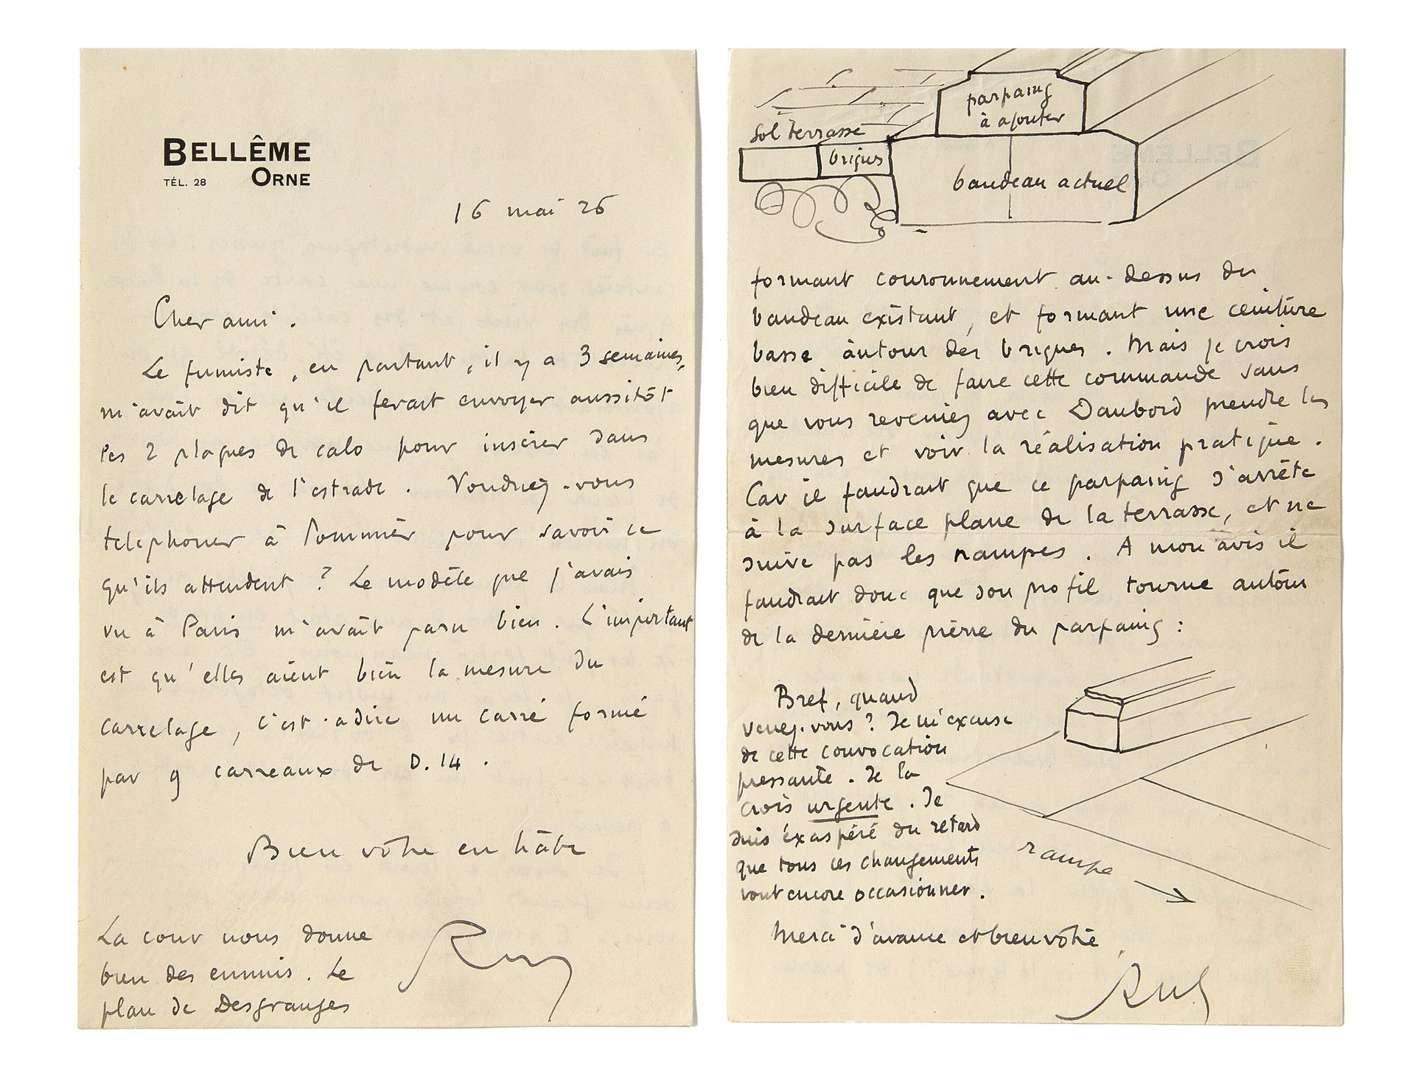 BELLÊME
TÉL. 28 ORNE
16 mai 26
Cher ami.
Le fumiste, en partant, il y a 3 semaines,
m'avait dit qu'il ferait envoyer aussitôt
les 2 plaques de calo pour insérer dans
le carrelage de l'estrade. Voudriez-vous
telephoner à Pommier pour savoir ce
qu'ils attendent ? Le modèle que j'avais
vu à Paris m'avait paru bien. L'important
est qu'elles aient bien la mesure du
carrelage, c'est-à-dire un carré formé
par 9 carreaux de D.14.
Bien vôtre en hâte
La cour nous donne
bien des ennuis. Le
plan de Desgranges
parpaing
à ajouter
Sol terrasse
briques
bandeau actuel
formant couronnement au-dessus du
bandeau existant, et formant une ceinture
basse autour des briques. Mais je crois
bien difficile de faire cette commande sans
que vous reveniez avec Daubord prendre les
mesures et voir la réalisation pratique.
Car il faudrait que ce parpaing s'arrête
à la surface plane de la terrasse, et ne
suive pas les rampes. A mon avis il
faudrait donc que son profil tourne autour
de la dernière pierre du parpaing :
Bref, quand
venez-vous ? Je m'excuse
de cette convocation
pressante. Je la
crois urgente. Je
suis éxaspéré du retard
que tous ces changements
vont encore occasionner.
rampe
Merci d'avance et bien vôtre